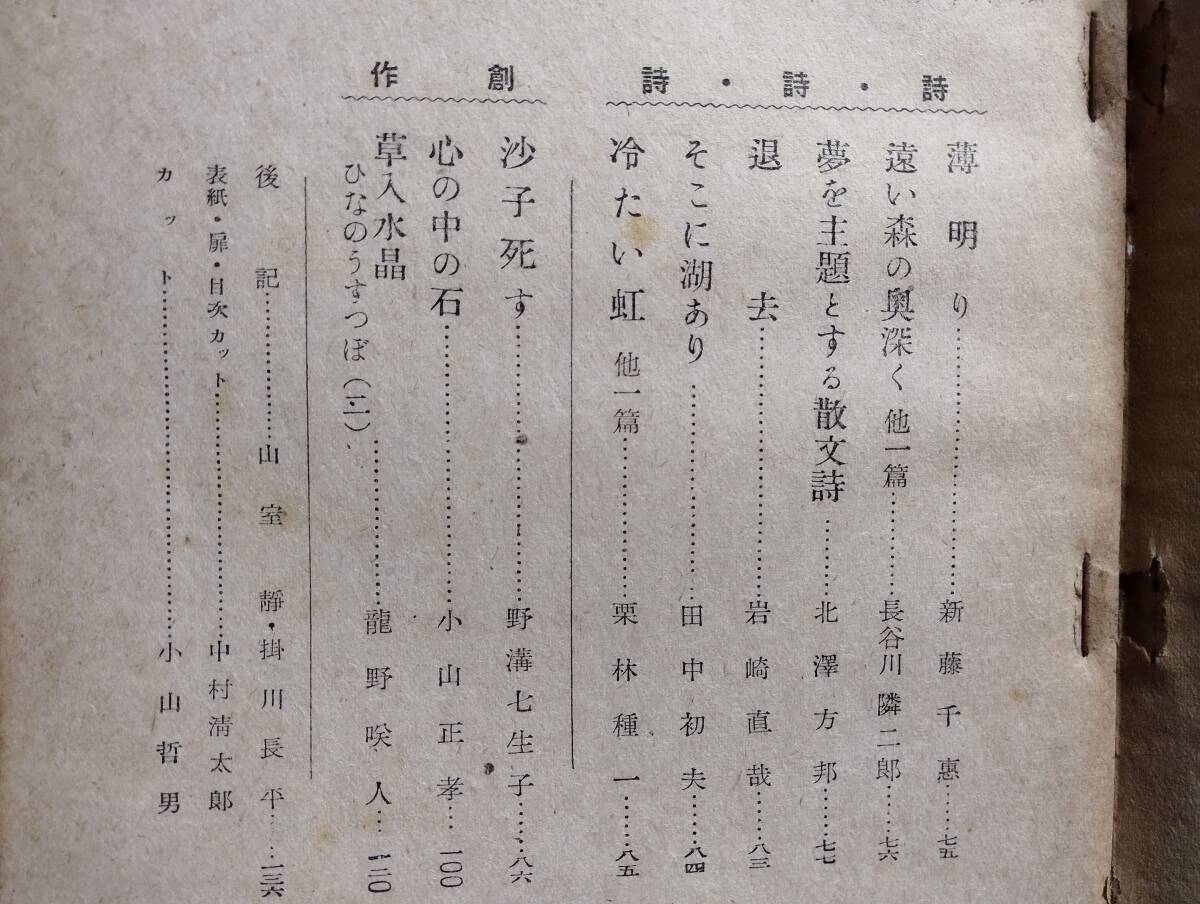 詩・詩・詩
薄明り……新藤千惠……七五
遠い森の奥深く 他一篇……長谷川隣二郎……七六
夢を主題とする散文詩……北澤方邦……七七
退去……岩崎直哉……八三
そこに湖あり……田中初夫……八四
冷たい虹 他一篇……栗林種一……八五
創作
沙子死す……野溝七生子……八六
心の中の石……小山正孝……一〇〇
草入水晶
ひなのうすつぼ(二)……龍野咲人……一二〇
後記……山室靜・掛川長平……一三六
表紙・扉・目次カット……中村清太郎
カット……小山哲男